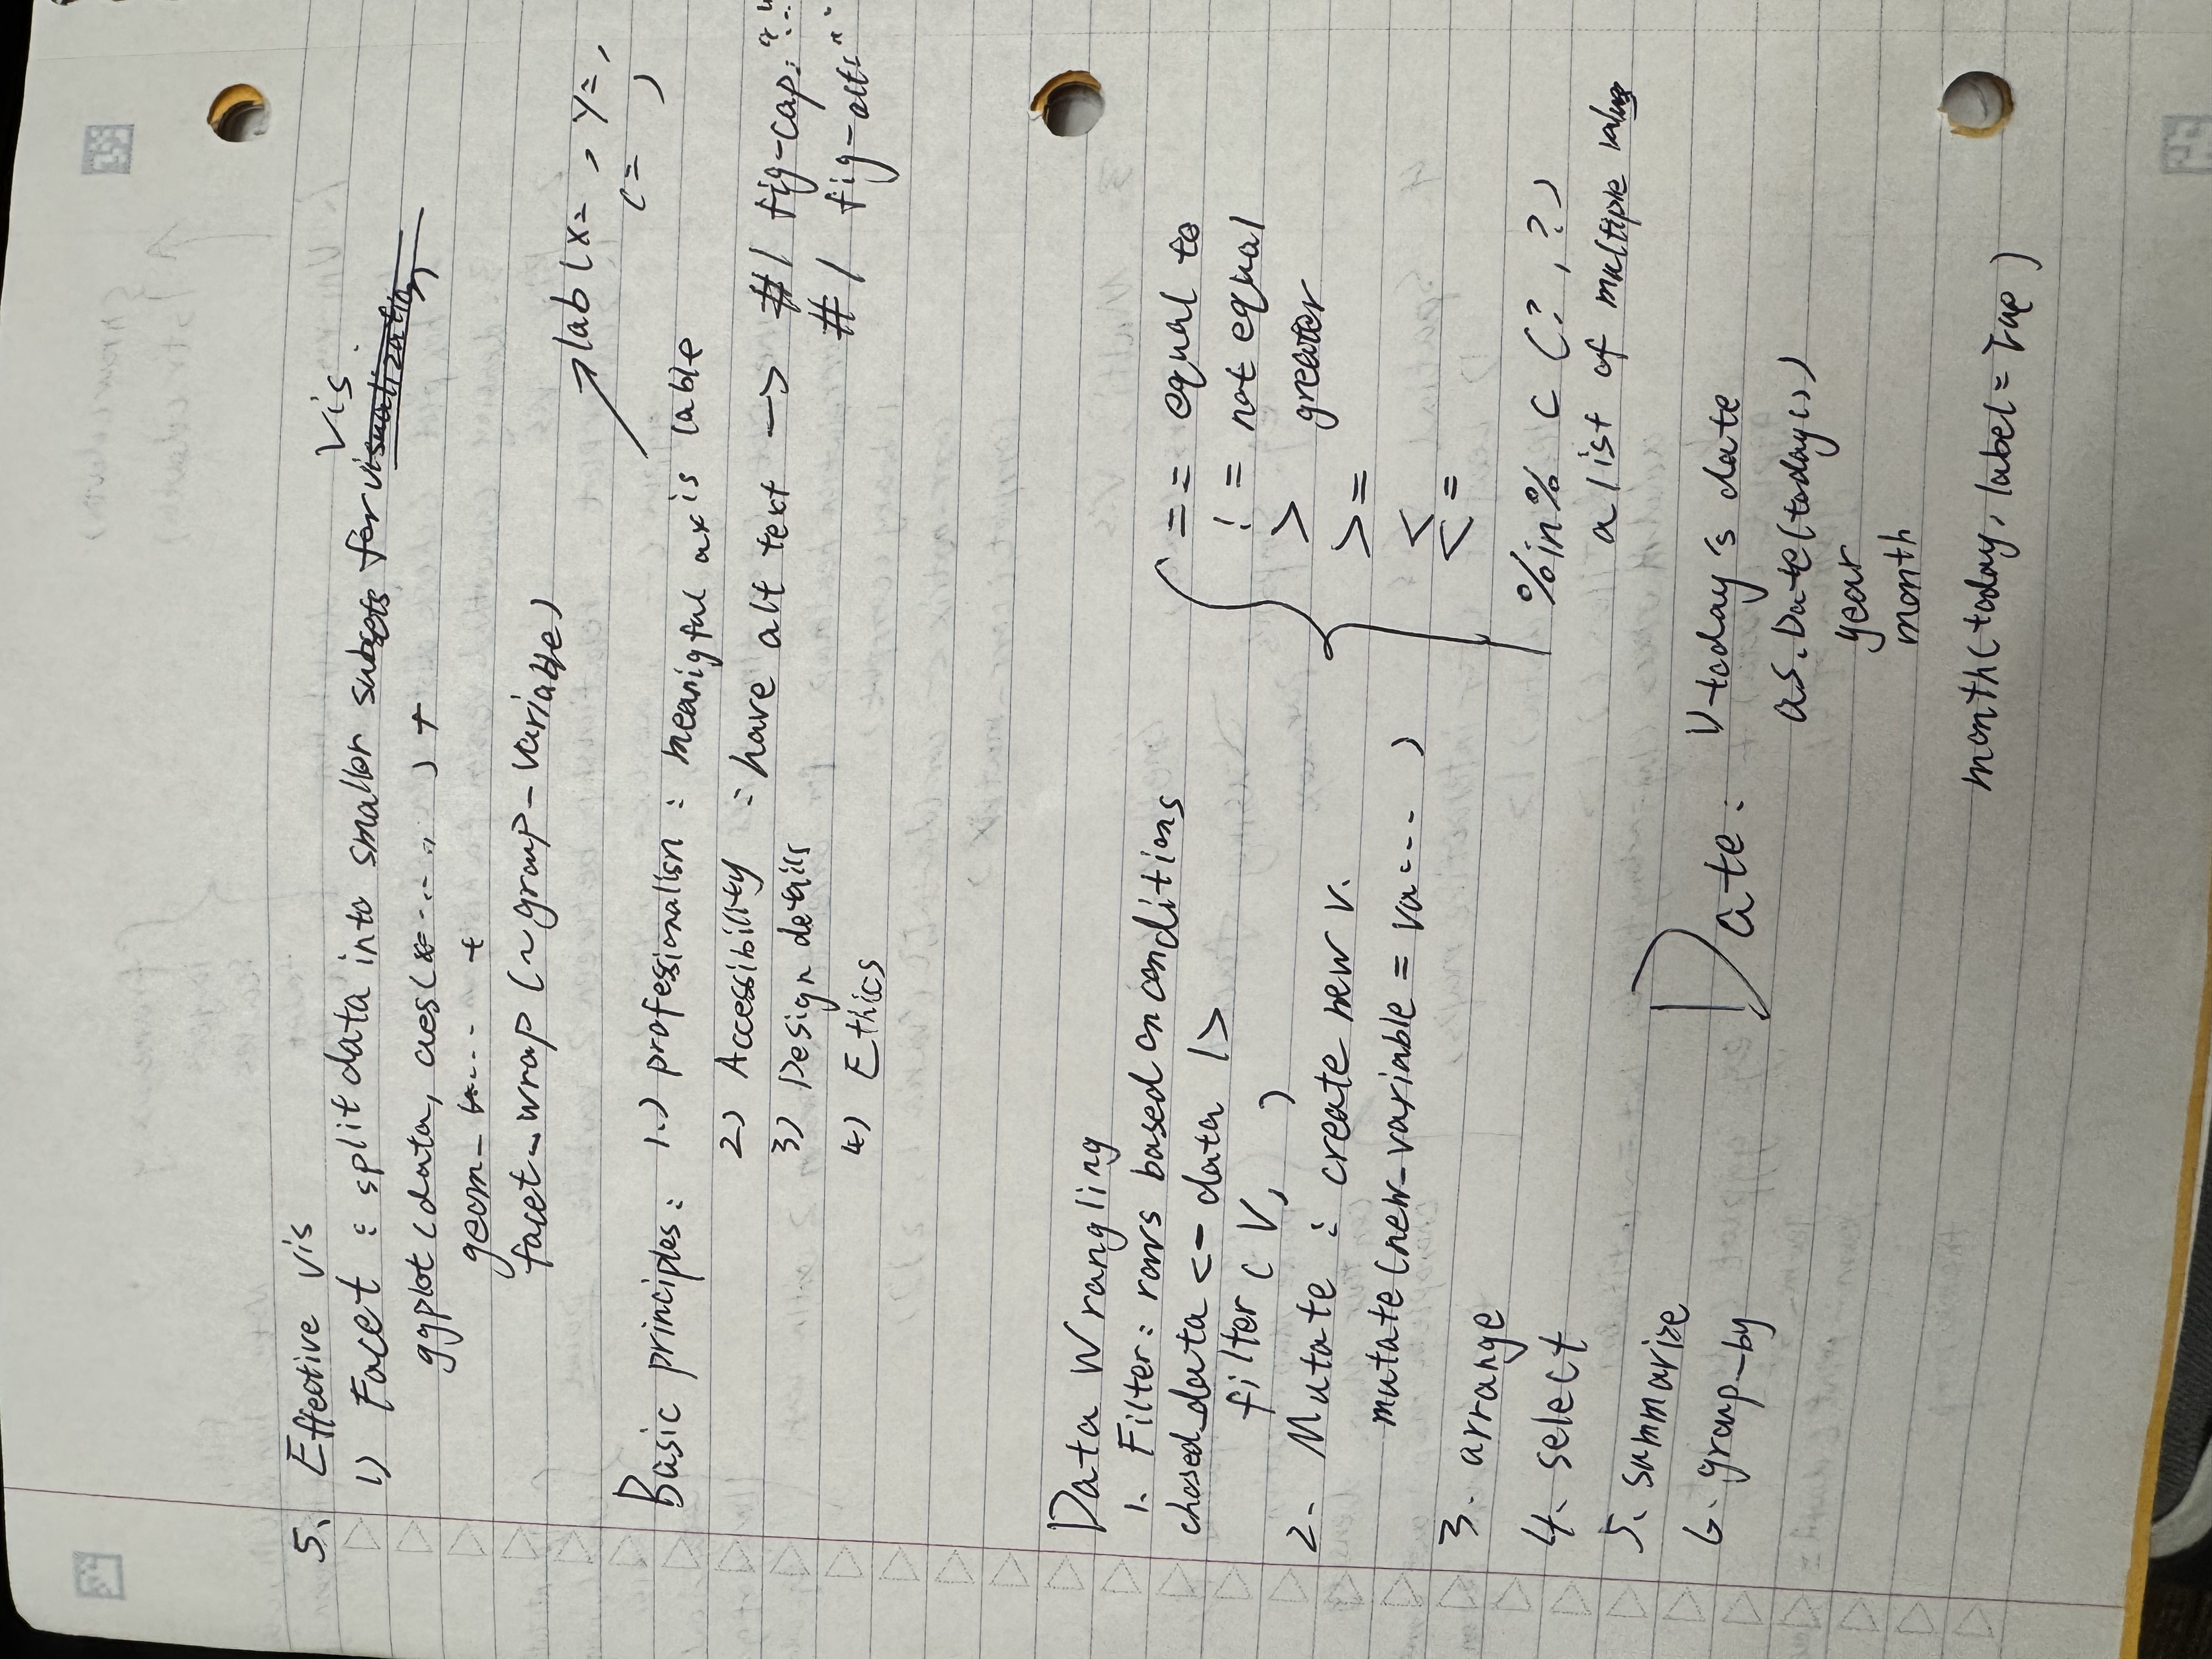 5. Effective vis
1) Facet : split data into smaller subsets for vis.
ggplot (data, aes(x= ... ) +
geom_ ... +
facet_wrap (~group-variable)
lab (x= , y= ,
c= )
Basic principles: 1.) professionalism : meanigful axis lable
2) Accessibility : have alt text -> #| fig-cap: "..."
#| fig-alt: " "
3) Design details
4) Ethics
Data Wrangling
1. Filter: rows based on conditions
chosed_data <- data |>
filter ( V, )
2. Mutate : create new v.
mutate (new_variable = va... )
3. arrange
4. select
5. summarize
6. group_by
== equal to
!= not equal
> greater
>=
<
<=
%in% c (?, ?)
a list of multiple values
Date: today's date
as.Date(today())
year
month
month(today, label = True )